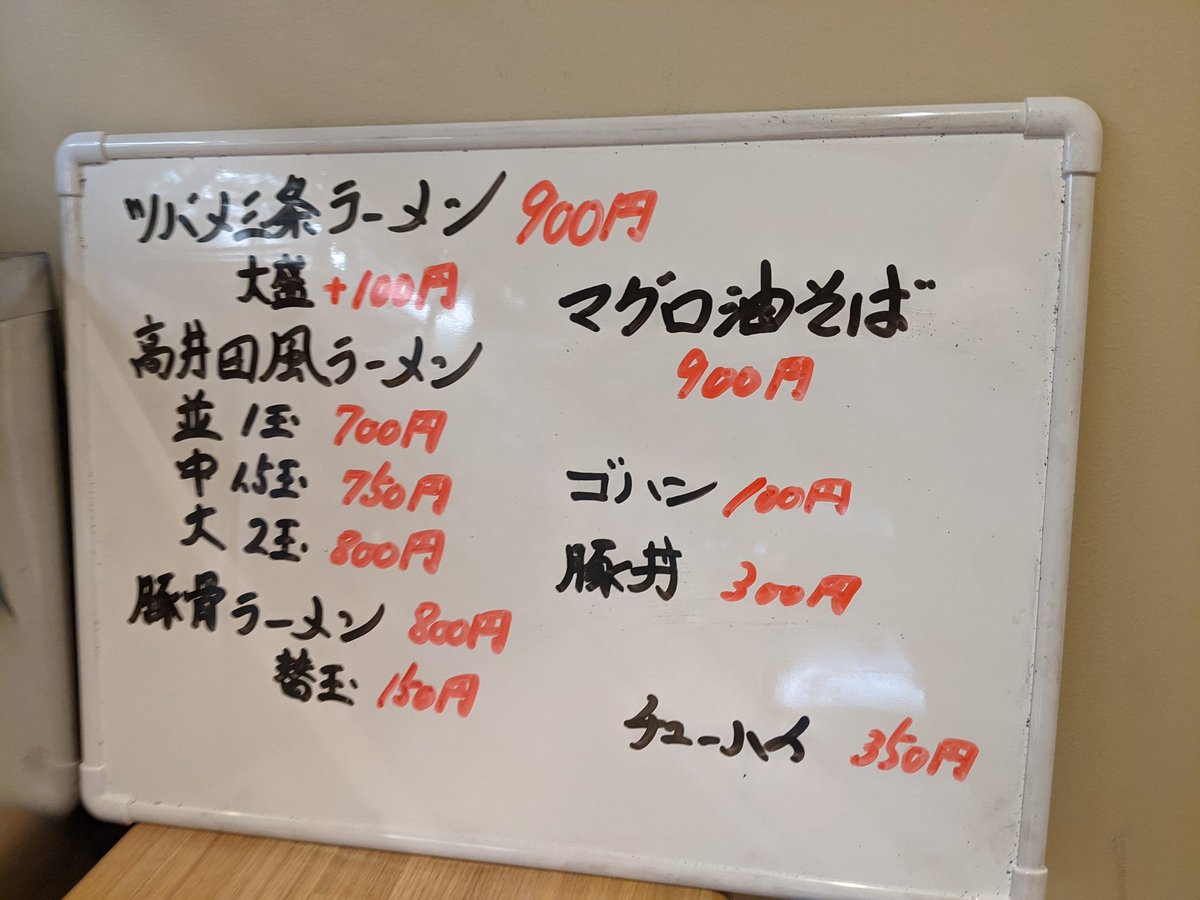 ツバメ三条ラーメン 900円
大盛 +100円
高井田風ラーメン
並 1玉 700円
中 1.5玉 750円
大 2玉 800円
豚骨ラーメン 800円
替玉 150円
マグロ油そば
900円
ゴハン 100円
豚丼 300円
チューハイ 350円